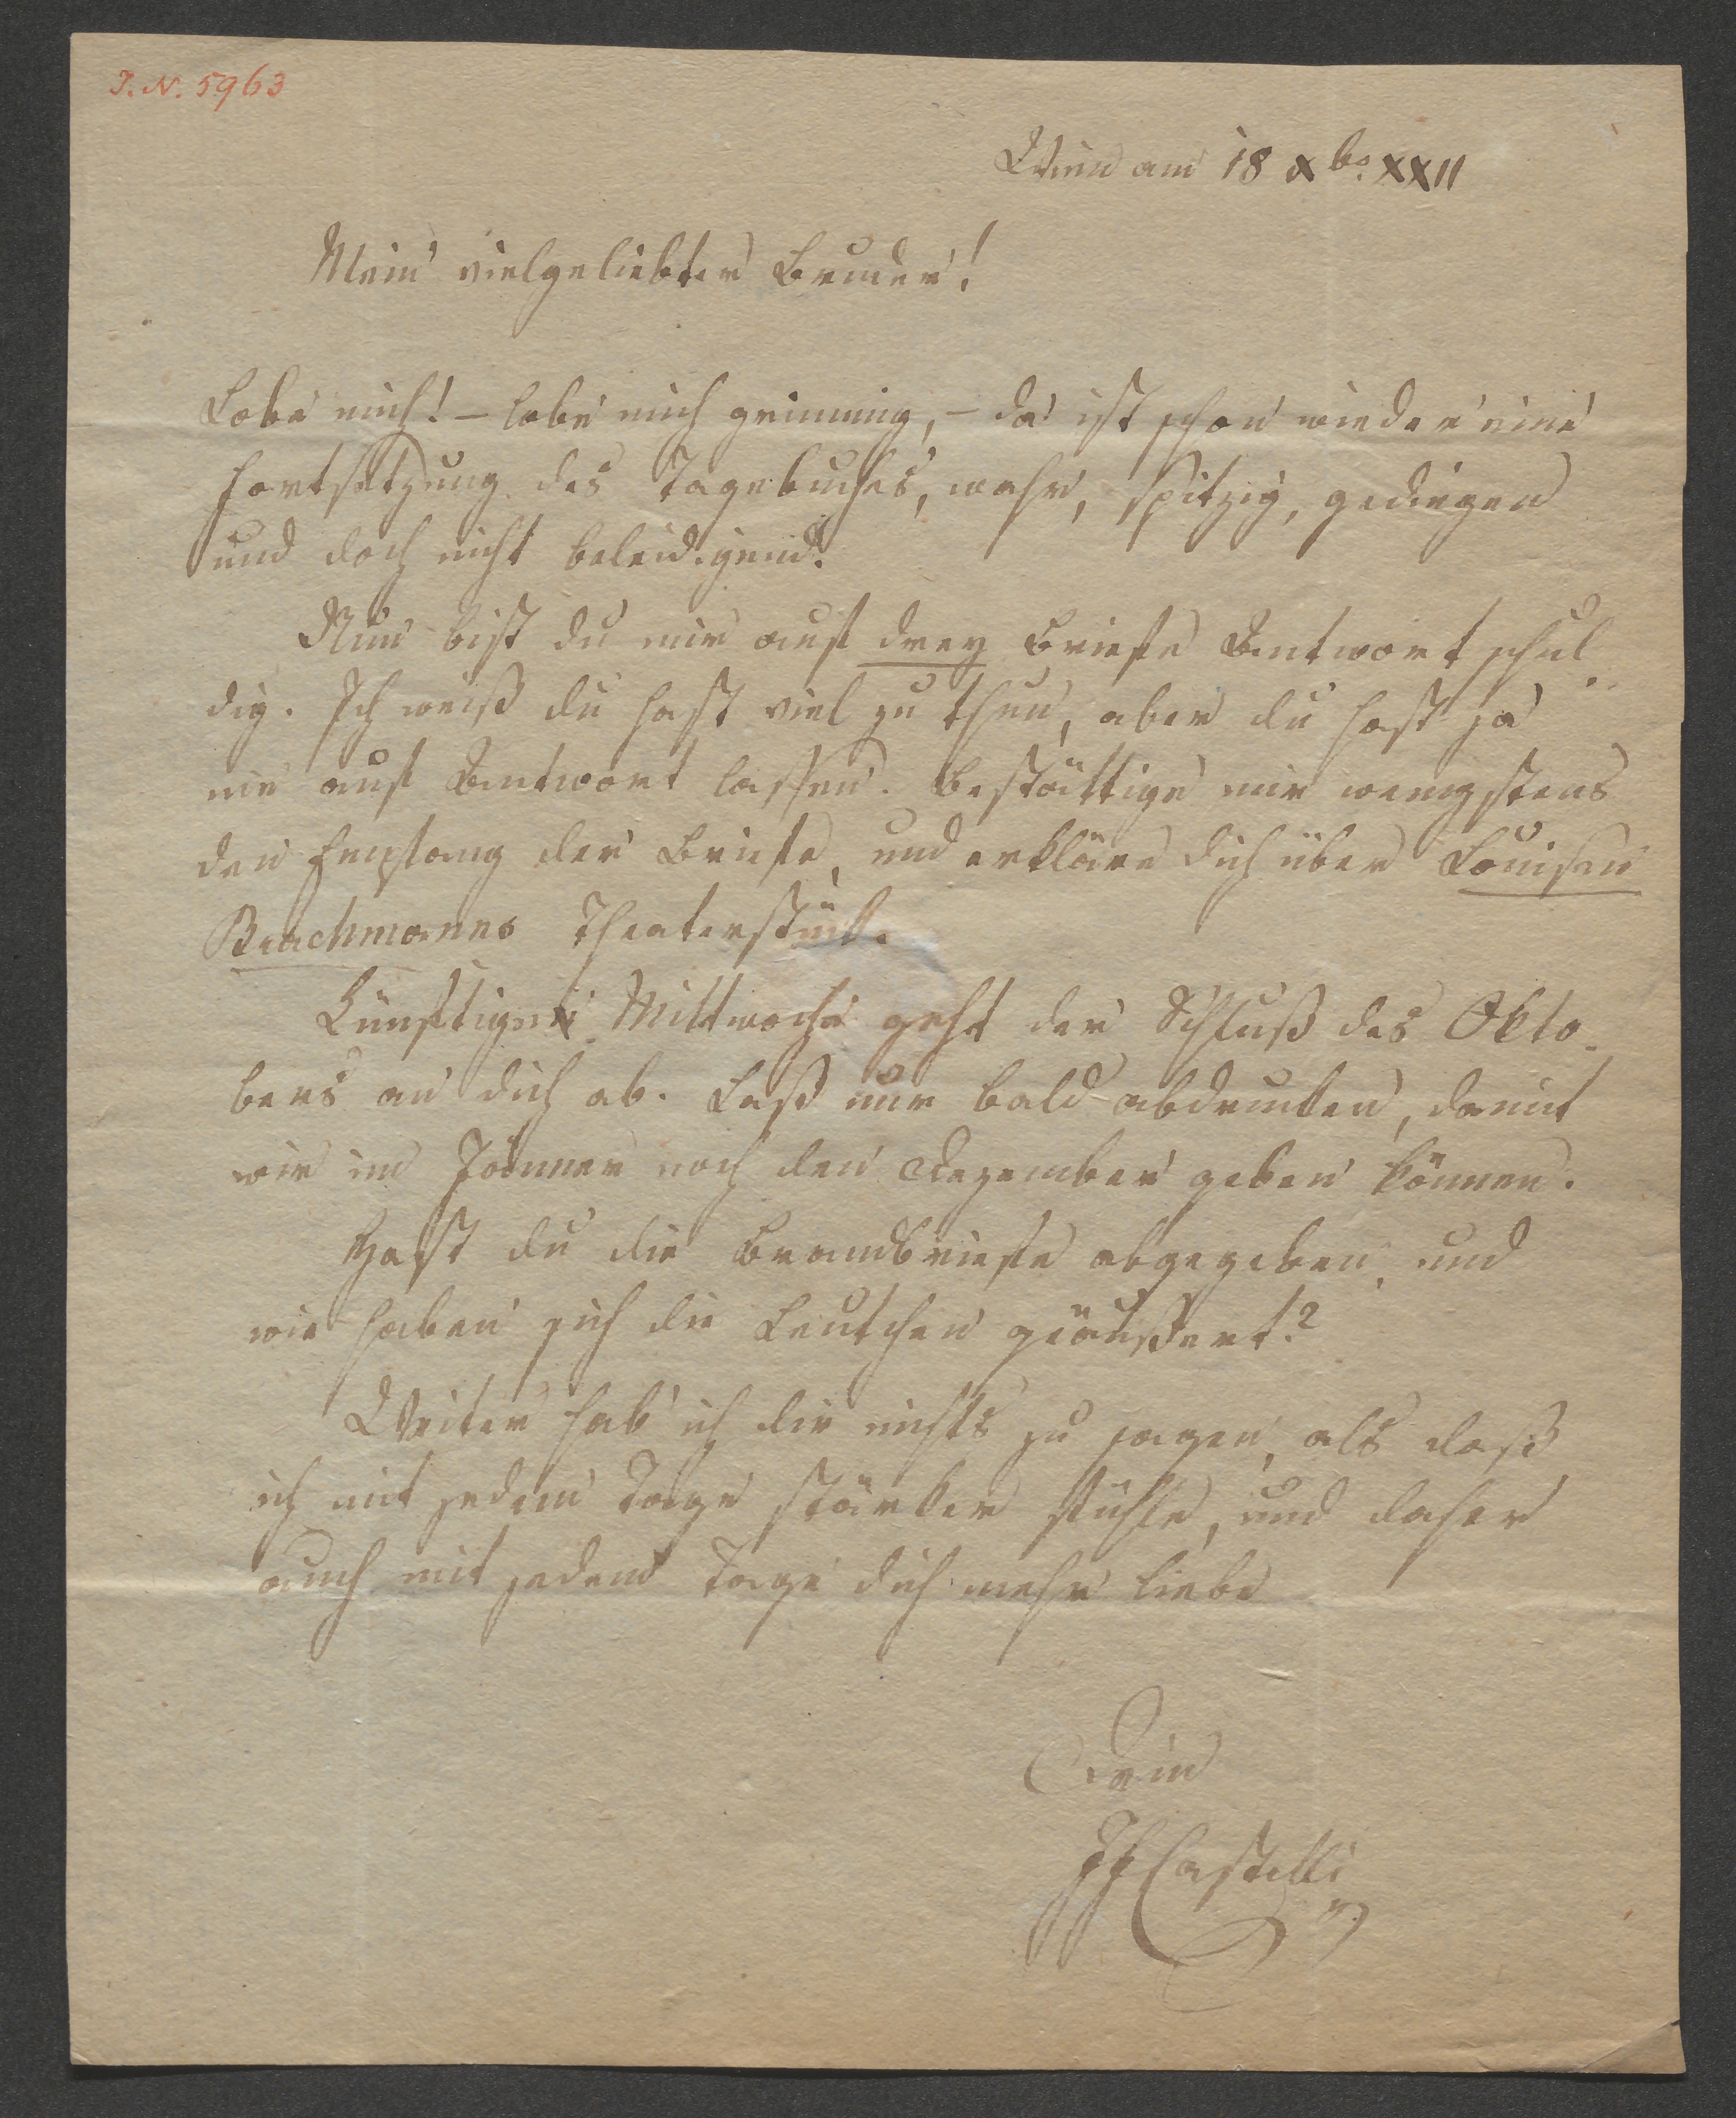 I. N. 5963
Wien am 18 Xb. XXII
Mein vielgeliebter Bruder!
Lobe mich! – lobe mich grimmig, – da ist schon wieder eine
Fortsetzung des Tagebuches, wahr, spitzig, gediegen
und doch nicht beleidigend.
Nun bist du mir auf drey Briefe Antwort schul-
dig. Ich weiß du hast viel zu thun, aber du hast ja
nie auf Antwort lassen. Bestättige mir wenigstens
den Empfang der Briefe, und erkläre dich über Louisen
Brachmanns Theaterstück.
Künftigen Mittwoche geht der Schluß des Okto-
bers an dich ab. Laß nur bald abdrucken, damit
wir im Jänner noch den Dezember geben können.
Hast du die Brandbriefe abgegeben, und
wie haben sich die Leutchen geäußert?
Weiter hab' ich dir nichts zu sagen, als daß
ich mit jedem Tage stärker fühle, und daher
auch mit jedem Tage dich mehr liebe
Dein
IF Castelli